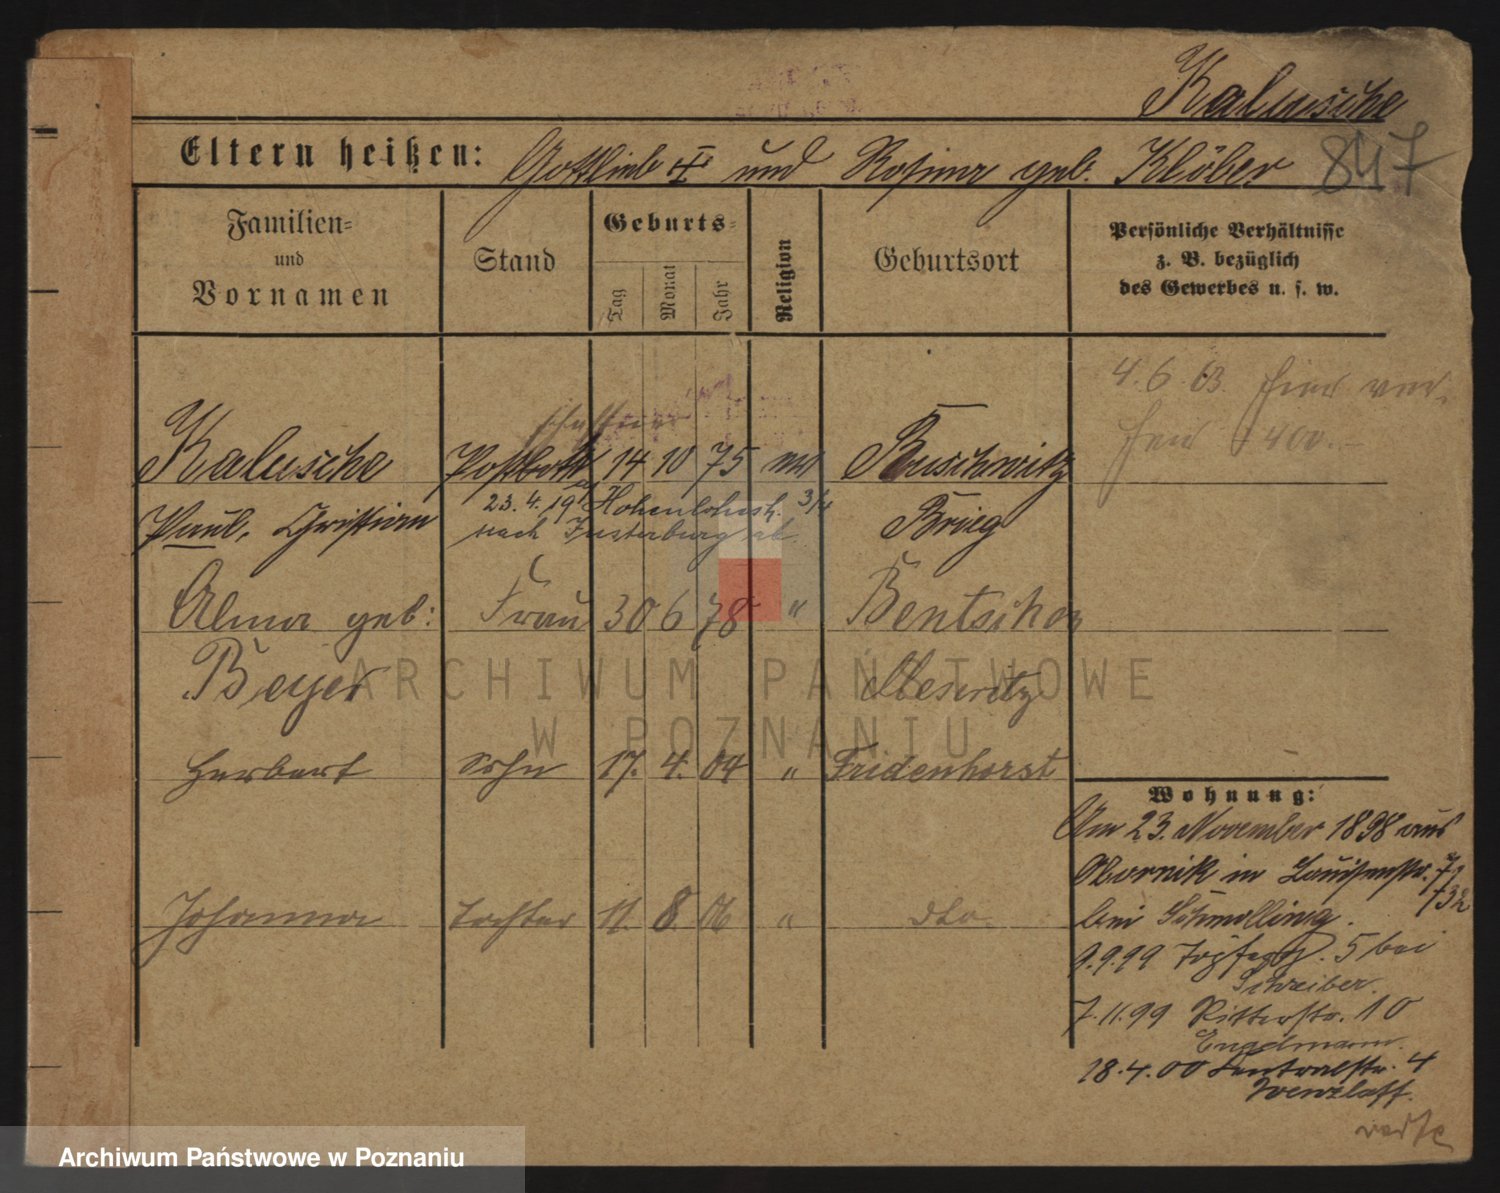 Kalusche
Eltern heißen: Gottlieb und Rosina geb. Klöber 847
Familien= und Vornamen
Stand
Geburts=
Tag Monat Jahr
Religion
Geburtsort
Persönliche Verhältnisse
z. B. bezüglich
des Gewerbes u. s. w.
4.6.03.
400.-
Kalusche Postbote 14 10 75 Buschwitz
23.4.19 Hohenlohestr. 3/4
Paul, Christian nach Insterburg ab. Brieg
Alma geb: Frau 30 6 78 " Bentschen
Beyer Meseritz
Herbert Sohn 17. 4. 04 " Fridenhorst
Johanna Tochter 11. 8. 06 " dto.
Wohnung:
Am 23. November 1898 aus
Obornik in Louisenstr. 7
bei Schmolling.
9.9.99 Töpferg. 5 bei
Schreiber.
7.11.99 Ritterstr. 10
Engelmann.
18.4.00 Centralstr. 4
Wenzlaff.
ARCHIWUM PAŃSTWOWE
W POZNANIU
Archiwum Państwowe w Poznaniu